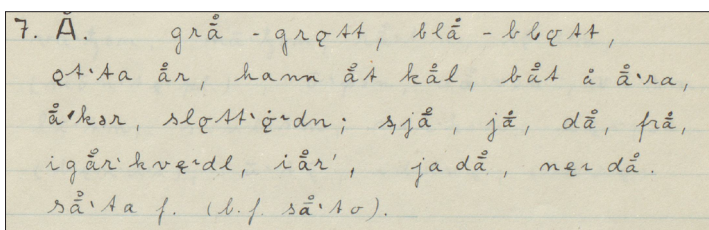 7. Å. grå̄ - grǫtt, blå̄ - blǫtt,
ǫt·ta år, hann åt kål, båt å å̄·ra,
å̄·kər, slǫtt·ǫ̇·dn; sjå̄, jå̄, då̄, frå̄,
igår·kvę·dl, iår', ja då̄, nęi då̄.
så̄·ta f. (b.f. så̄·to).